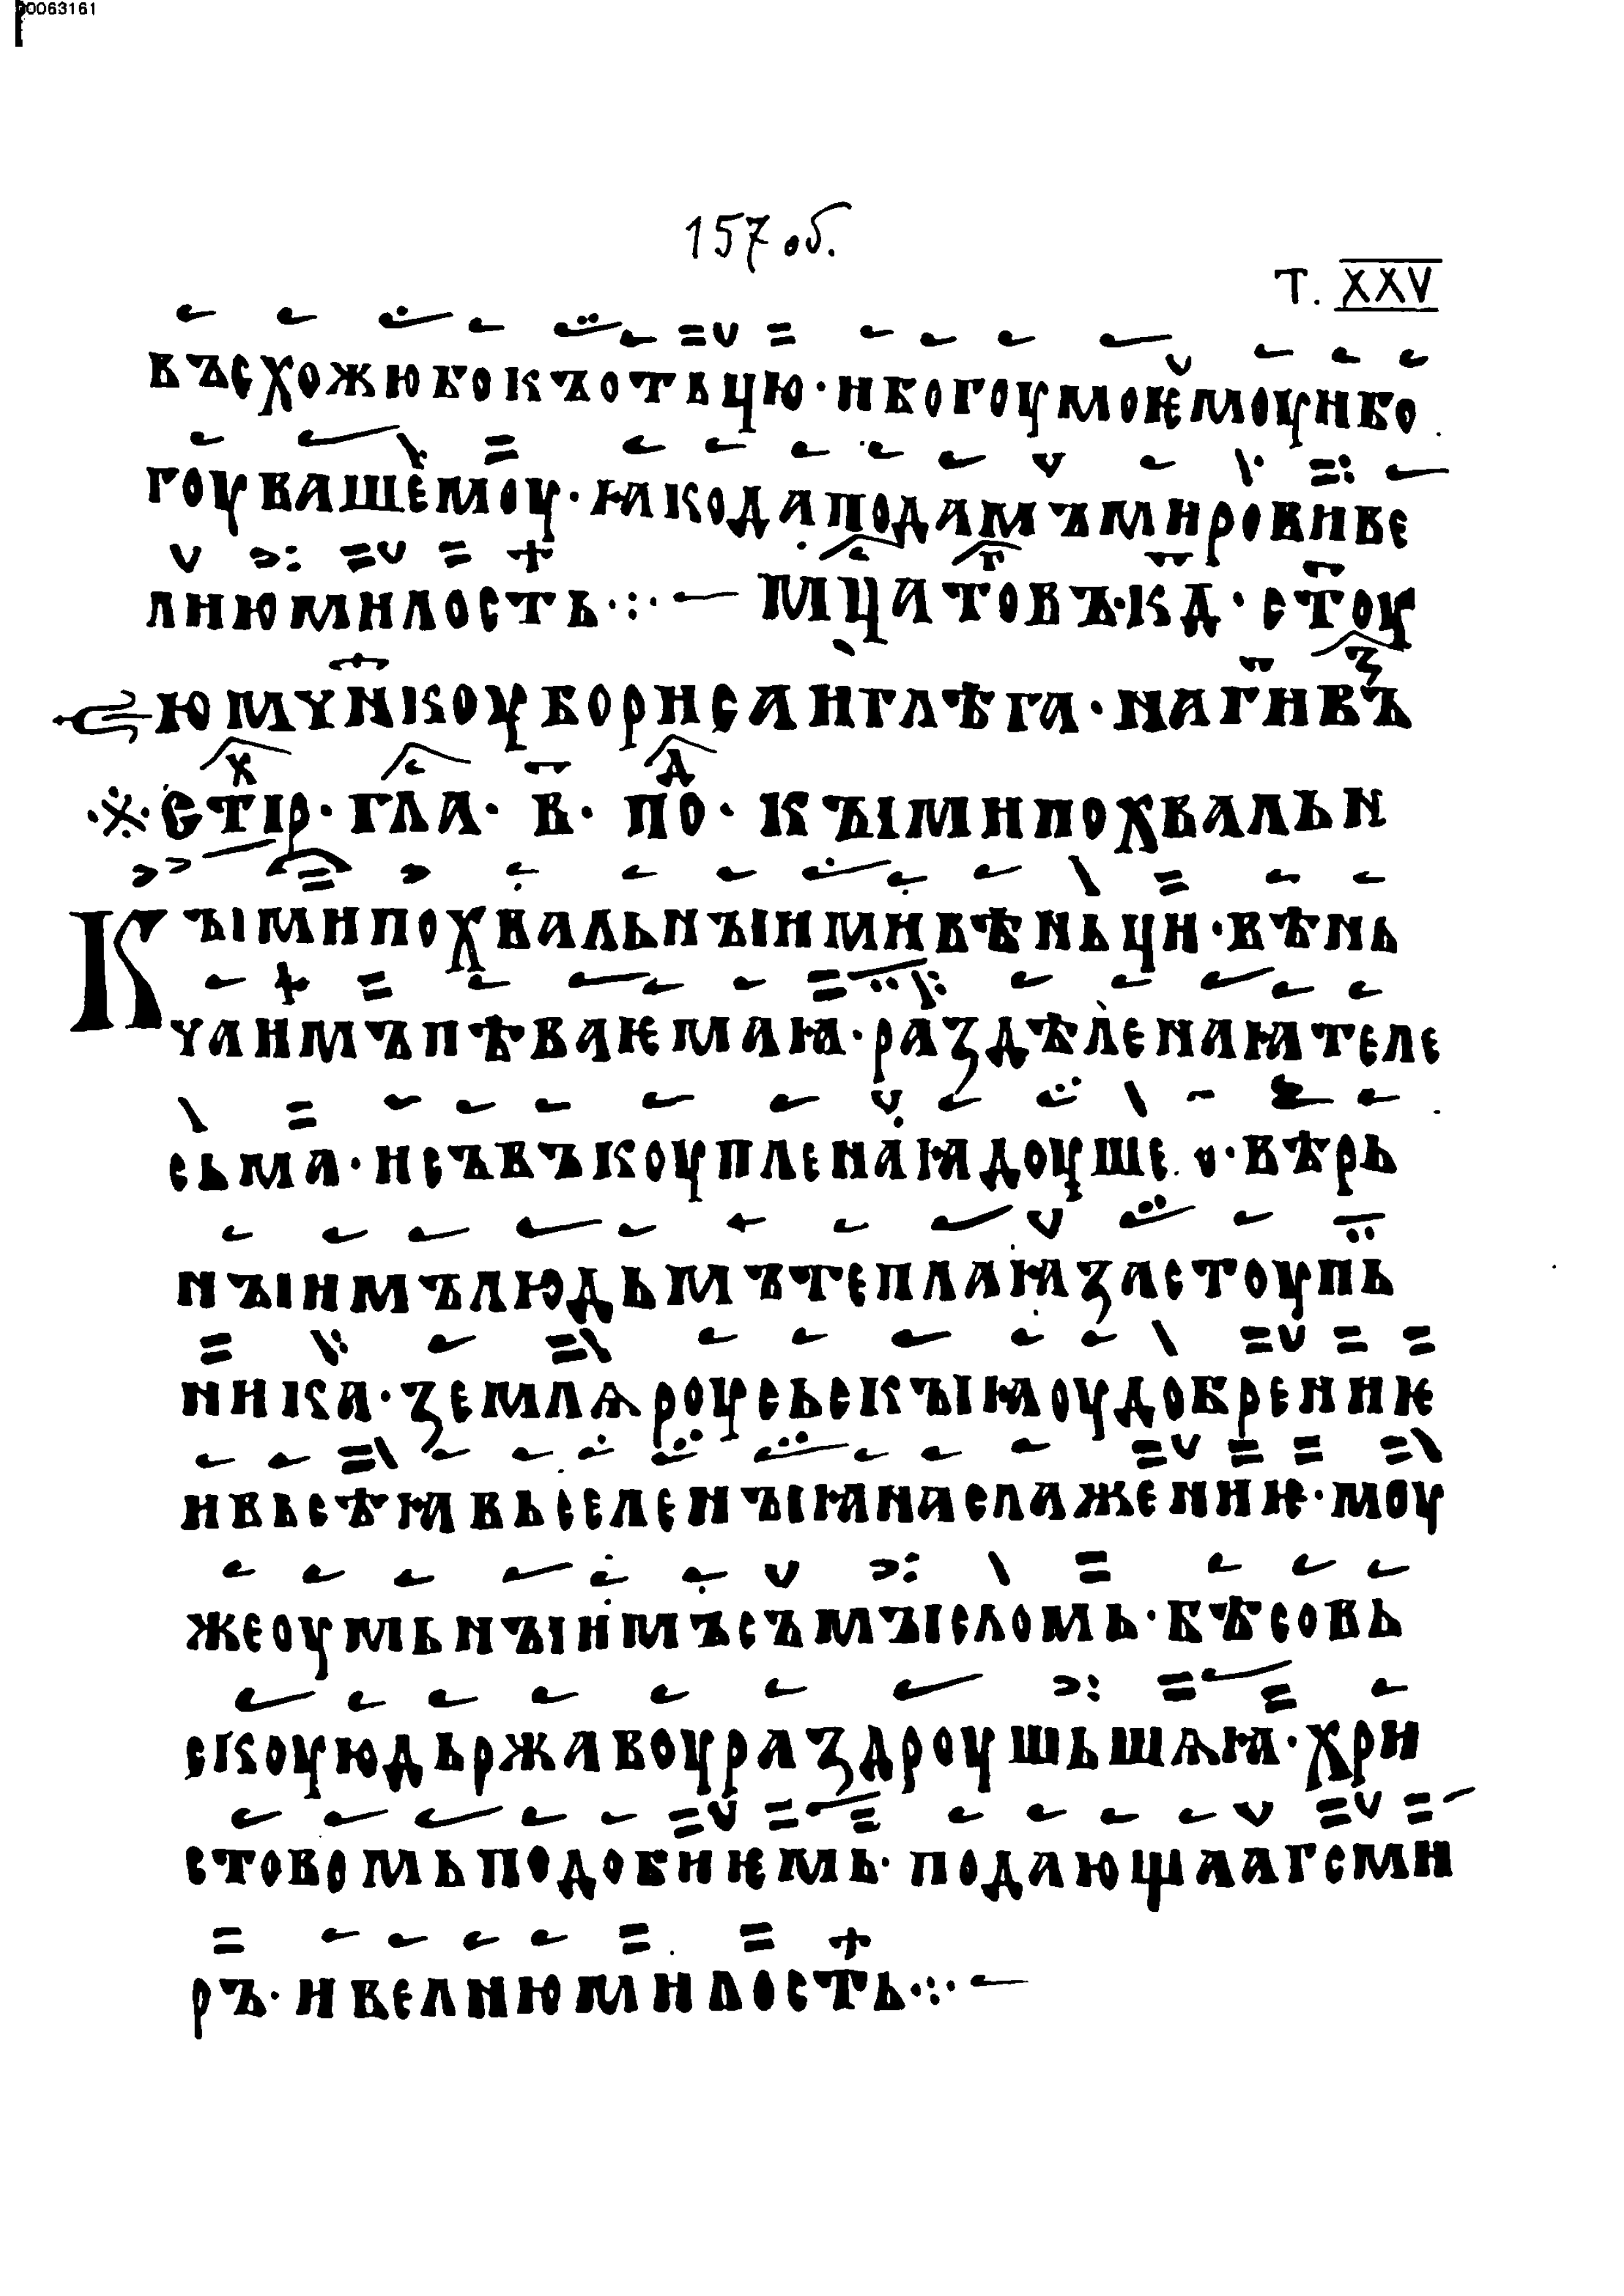 00063161
157 об.
Т. XXV
въсхожюбокъотьцю·ибогоумоѥмоуибо
гоувашемоу·ꙗкодаподамъмировиве
лиюмилость·:·— мц҃а то҃въ·к҃д·ст҃оу
юмч҃нкоуборисаиглѣга·наг҃ивъз
сті҃рх·глас·в҃·под·къімипохвальн
Къімипохвальнъіимивѣньци·вѣнь
чаимъпѣваѥмаꙗ·раздѣленаꙗтеле
сьма·исъвъкоупленаꙗдоуше·вѣрь
нъіимълюдьмътеплаꙗзастоупь
ника·землѧроусьскъіꙗоудобрениѥ
ивьсѣꙗвьселенъіꙗнаслажениѥ·моу
жеоумьнъіимъсъмъісломь·бѣсовь
скоуюдьржавоураздроушьшѧꙗ·хри
стовомьподобиѥмь·подающаагоми
ръ·ивелиюмилость·:·—